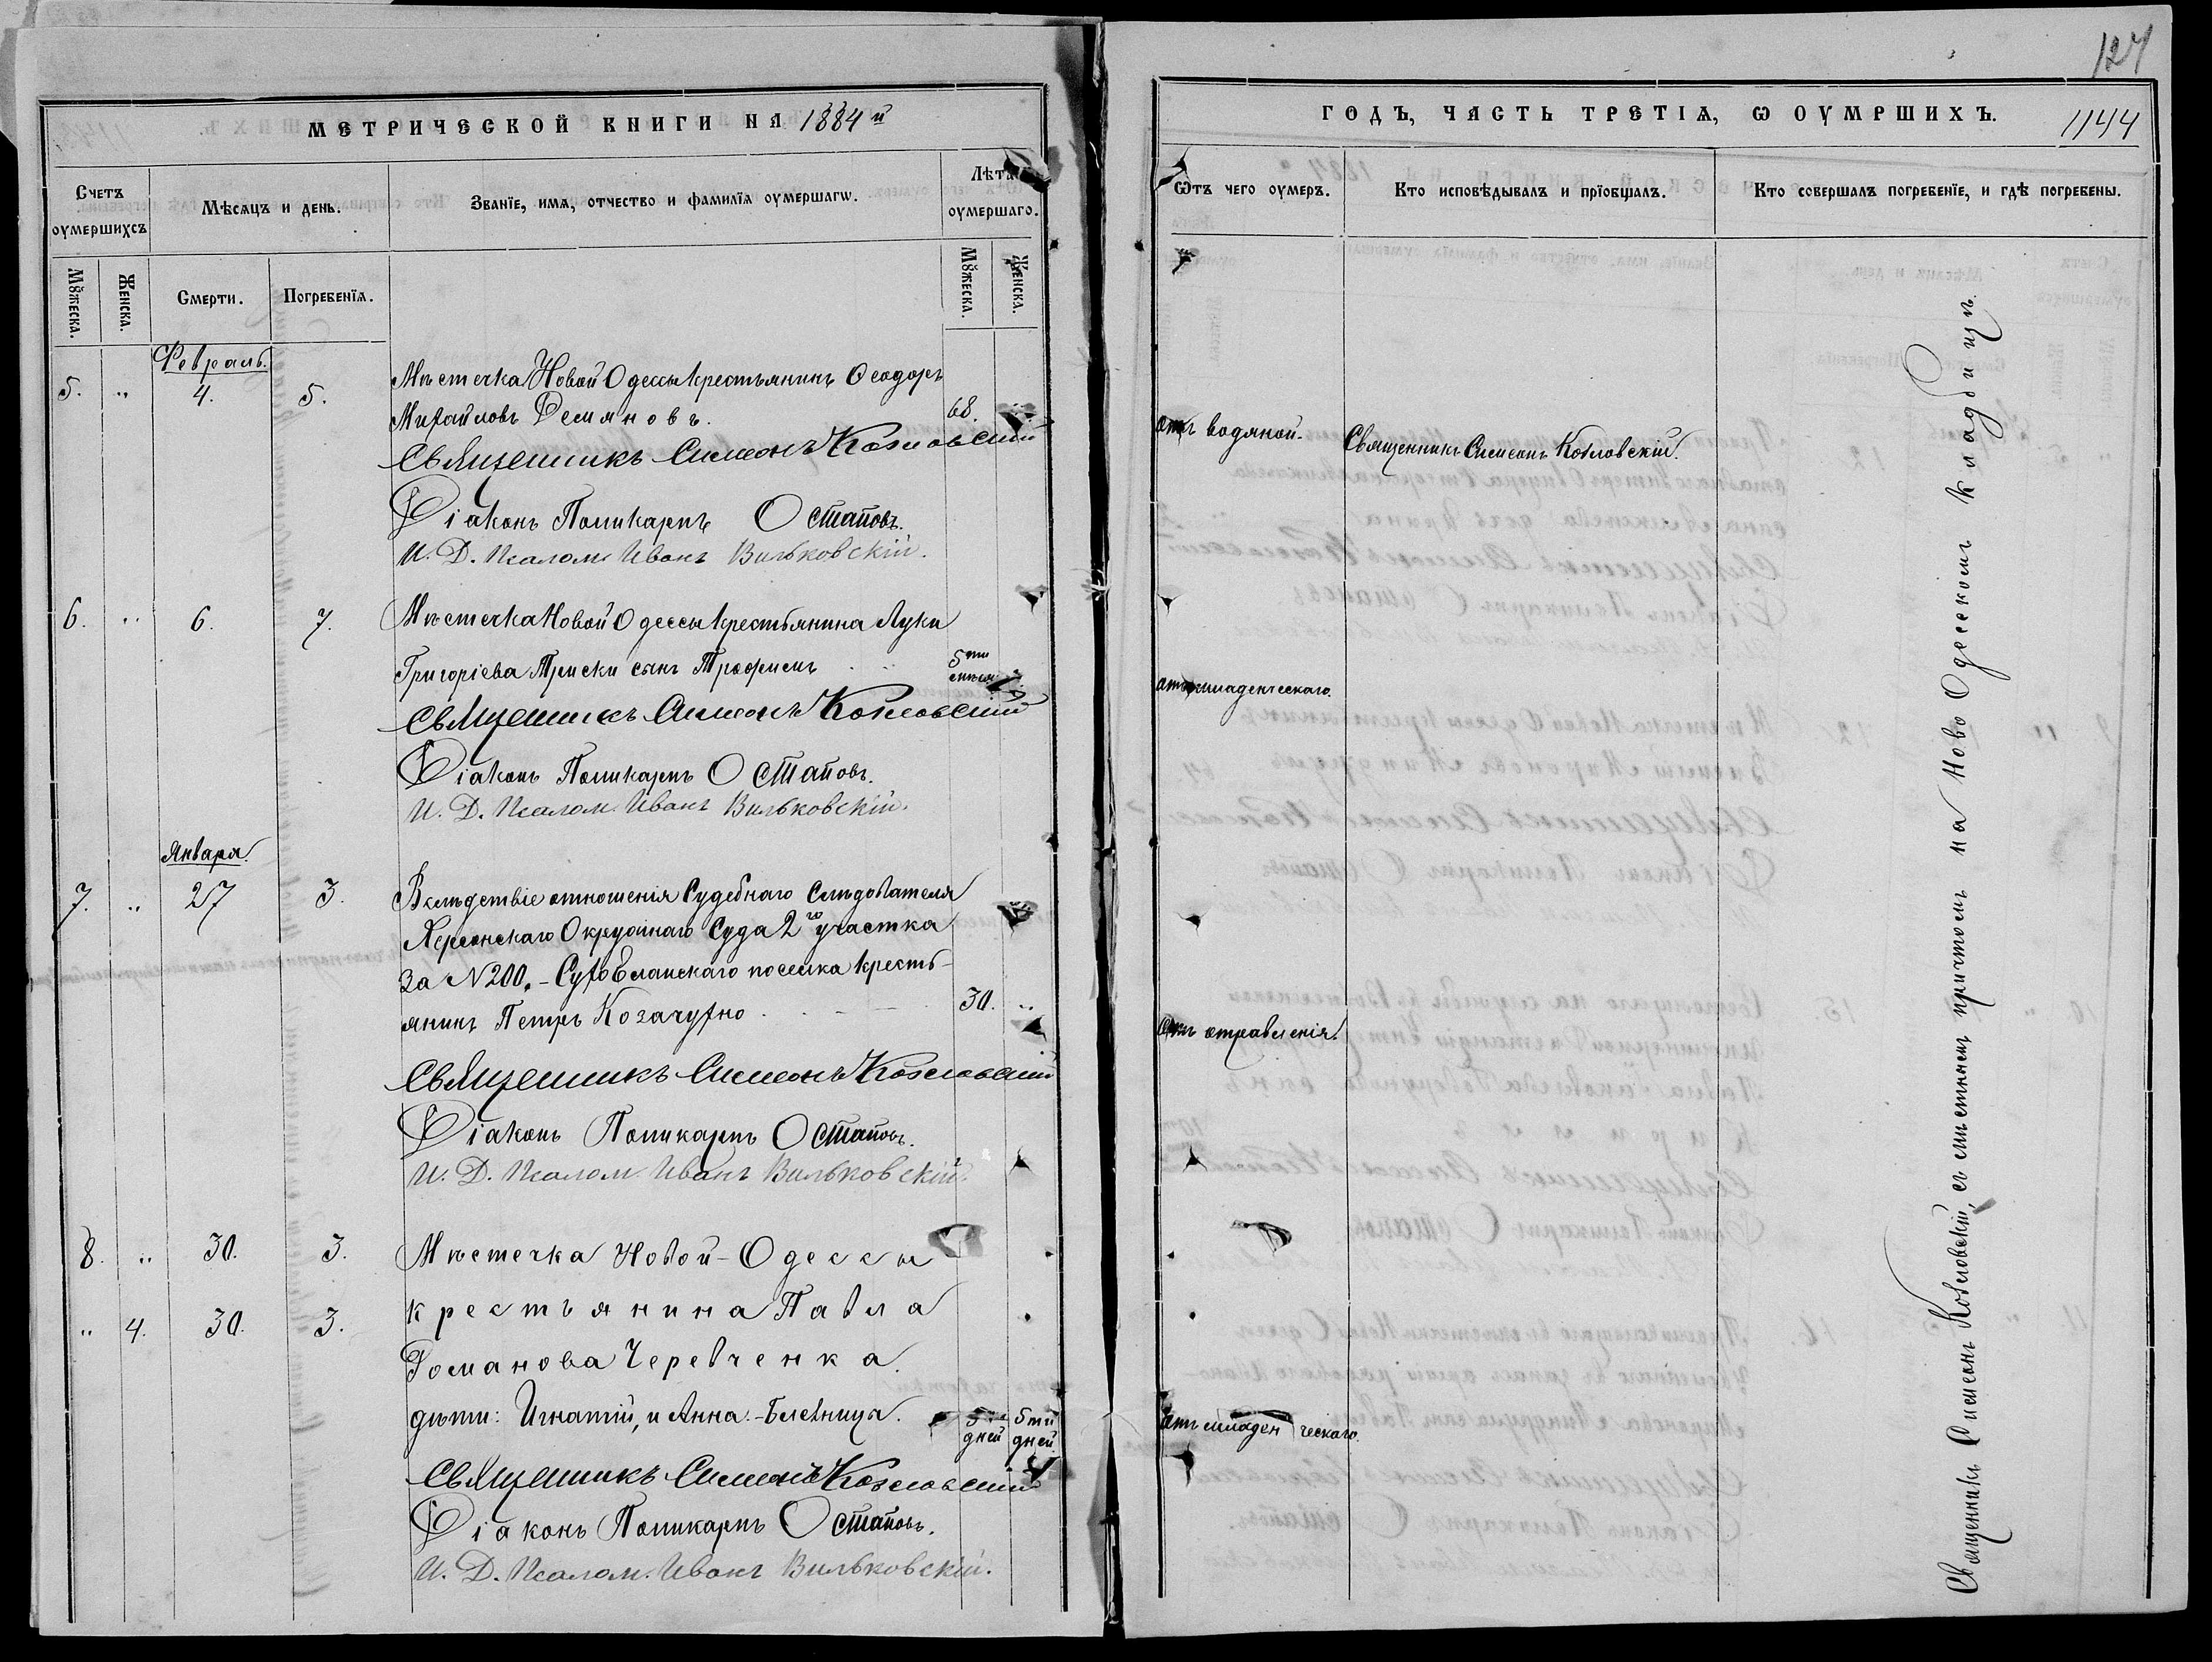 МЕТРИЧЕСКОЙ КНИГИ НА 1884 й
Счетъ оумершихсъ
Мѣсяцъ и день.
Званїе, имя, отчество и фамилїя оумершагѡ.
Лѣта оумершаго.
Мꙋжеска. Женска. Смерти. Погребенїя. Мꙋжеска. Женска.
Февраль.
5. " 4. 5. Мѣстечка Новой Одессы крестьянинъ Ѳеодоръ
Михайловъ Демяновъ. 68. "
Священникъ Симеонъ Козловскій
Діаконъ Поликарпъ Остаповъ.
И. Д. Псалом. Иванъ Вильковскій.
6. " 6. 7. Мѣстечка Новой Одессы крестьянина Луки
Григоріева Триски сынъ Трофимъ 5ти
Священникъ Симеонъ Козловскій
Діаконъ Поликарпъ Остаповъ.
И. Д. Псалом. Иванъ Вильковскій.
Января.
7. " 27 3. Вслѣдствіе отношенія Судебнаго Слѣдователя
Херсонскаго Окружнаго Суда 2го участка
за N 200. - Сухо Еланскаго поселка кресть-
янинъ Петръ Козачухно 30. "
Священникъ Симеонъ Козловскій
Діаконъ Поликарпъ Остаповъ.
И. Д. Псалом. Иванъ Вильковскій.
8. " 30. 3. Мѣстечка Новой-Одессы
" 4. 30. 3. крестьянина Павла
Романова Черевченка
дѣти: Игнатій, и Анна. - Близница. 5ти дней 5ти дней
Священникъ Симеонъ Козловскій
Діаконъ Поликарпъ Остаповъ.
И. Д. Псалом. Иванъ Вильковскій.
127
ГОДЪ, ЧАСТЬ ТРЕТІЯ, Ѡ ОУМРШИХЪ.
1144
Ѿтъ чего оумеръ.
Кто исповѣдывалъ и прїобщалъ.
Кто совершалъ погребенїе, и гдѣ погребены.
отъ водяной.
Священникъ Симеонъ Козловскій.
отъ младенческаго.
отъ отравленія.
отъ младенческаго.
Священникъ Симеонъ Козловскій, съ мѣстнымъ причтомъ на Ново Одесскомъ кладбищѣ.